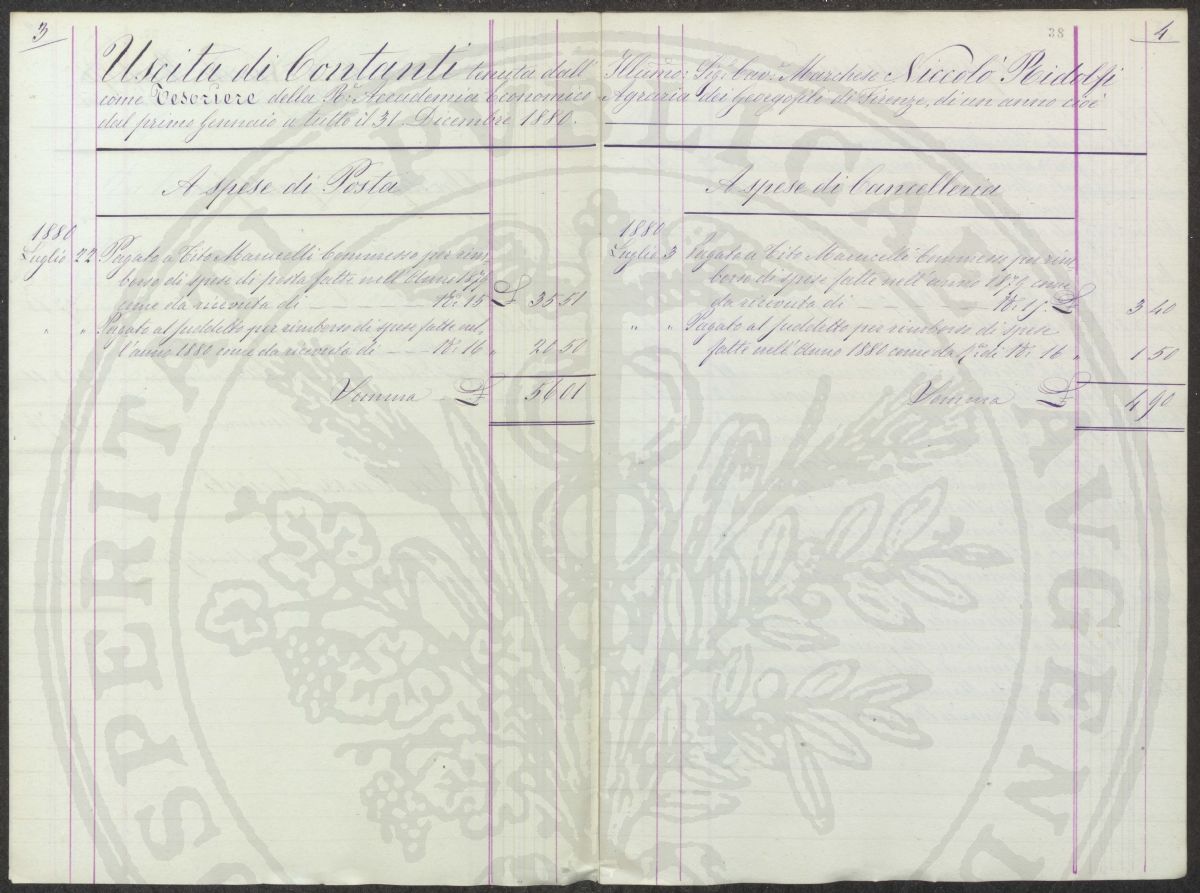 3
Uscita di Contanti tenuta dall' Illumo: Sig: Cav: Marchese Niccolò Ridolfi
come Tesoriere della R: Accademia Economico Agraria dei Georgofili di Firenze, di un anno cioè
dal primo Gennaio a tutto il 31. Dicembre 1880.
A spese di Posta
1880
Luglio 22 Pagato a Tito Marucelli Commesso per rim-
borso di spese di posta fatte nell'Anno 1879
come da ricevuta di N: 15 £ 35 51
" " Pagato al suddetto per rimborso di spese fatte nel-
l'anno 1880 come da ricevuta di N: 16 " 20 50
Somma £ 56 01
38
4
A spese di Cancelleria
1880
Luglio 3 Pagato a Tito Marucelli Commesso per rim-
borso di spese fatte nell'anno 1879 come
da ricevuta di N: 15. £ 3 40
" " Pagato al suddetto per rimborso di spese
fatte nell'Anno 1880 come da ra di N: 16 " 1 50
Somma £ 4 90
PROSPERITATI PUBLICAE AUGENDAE